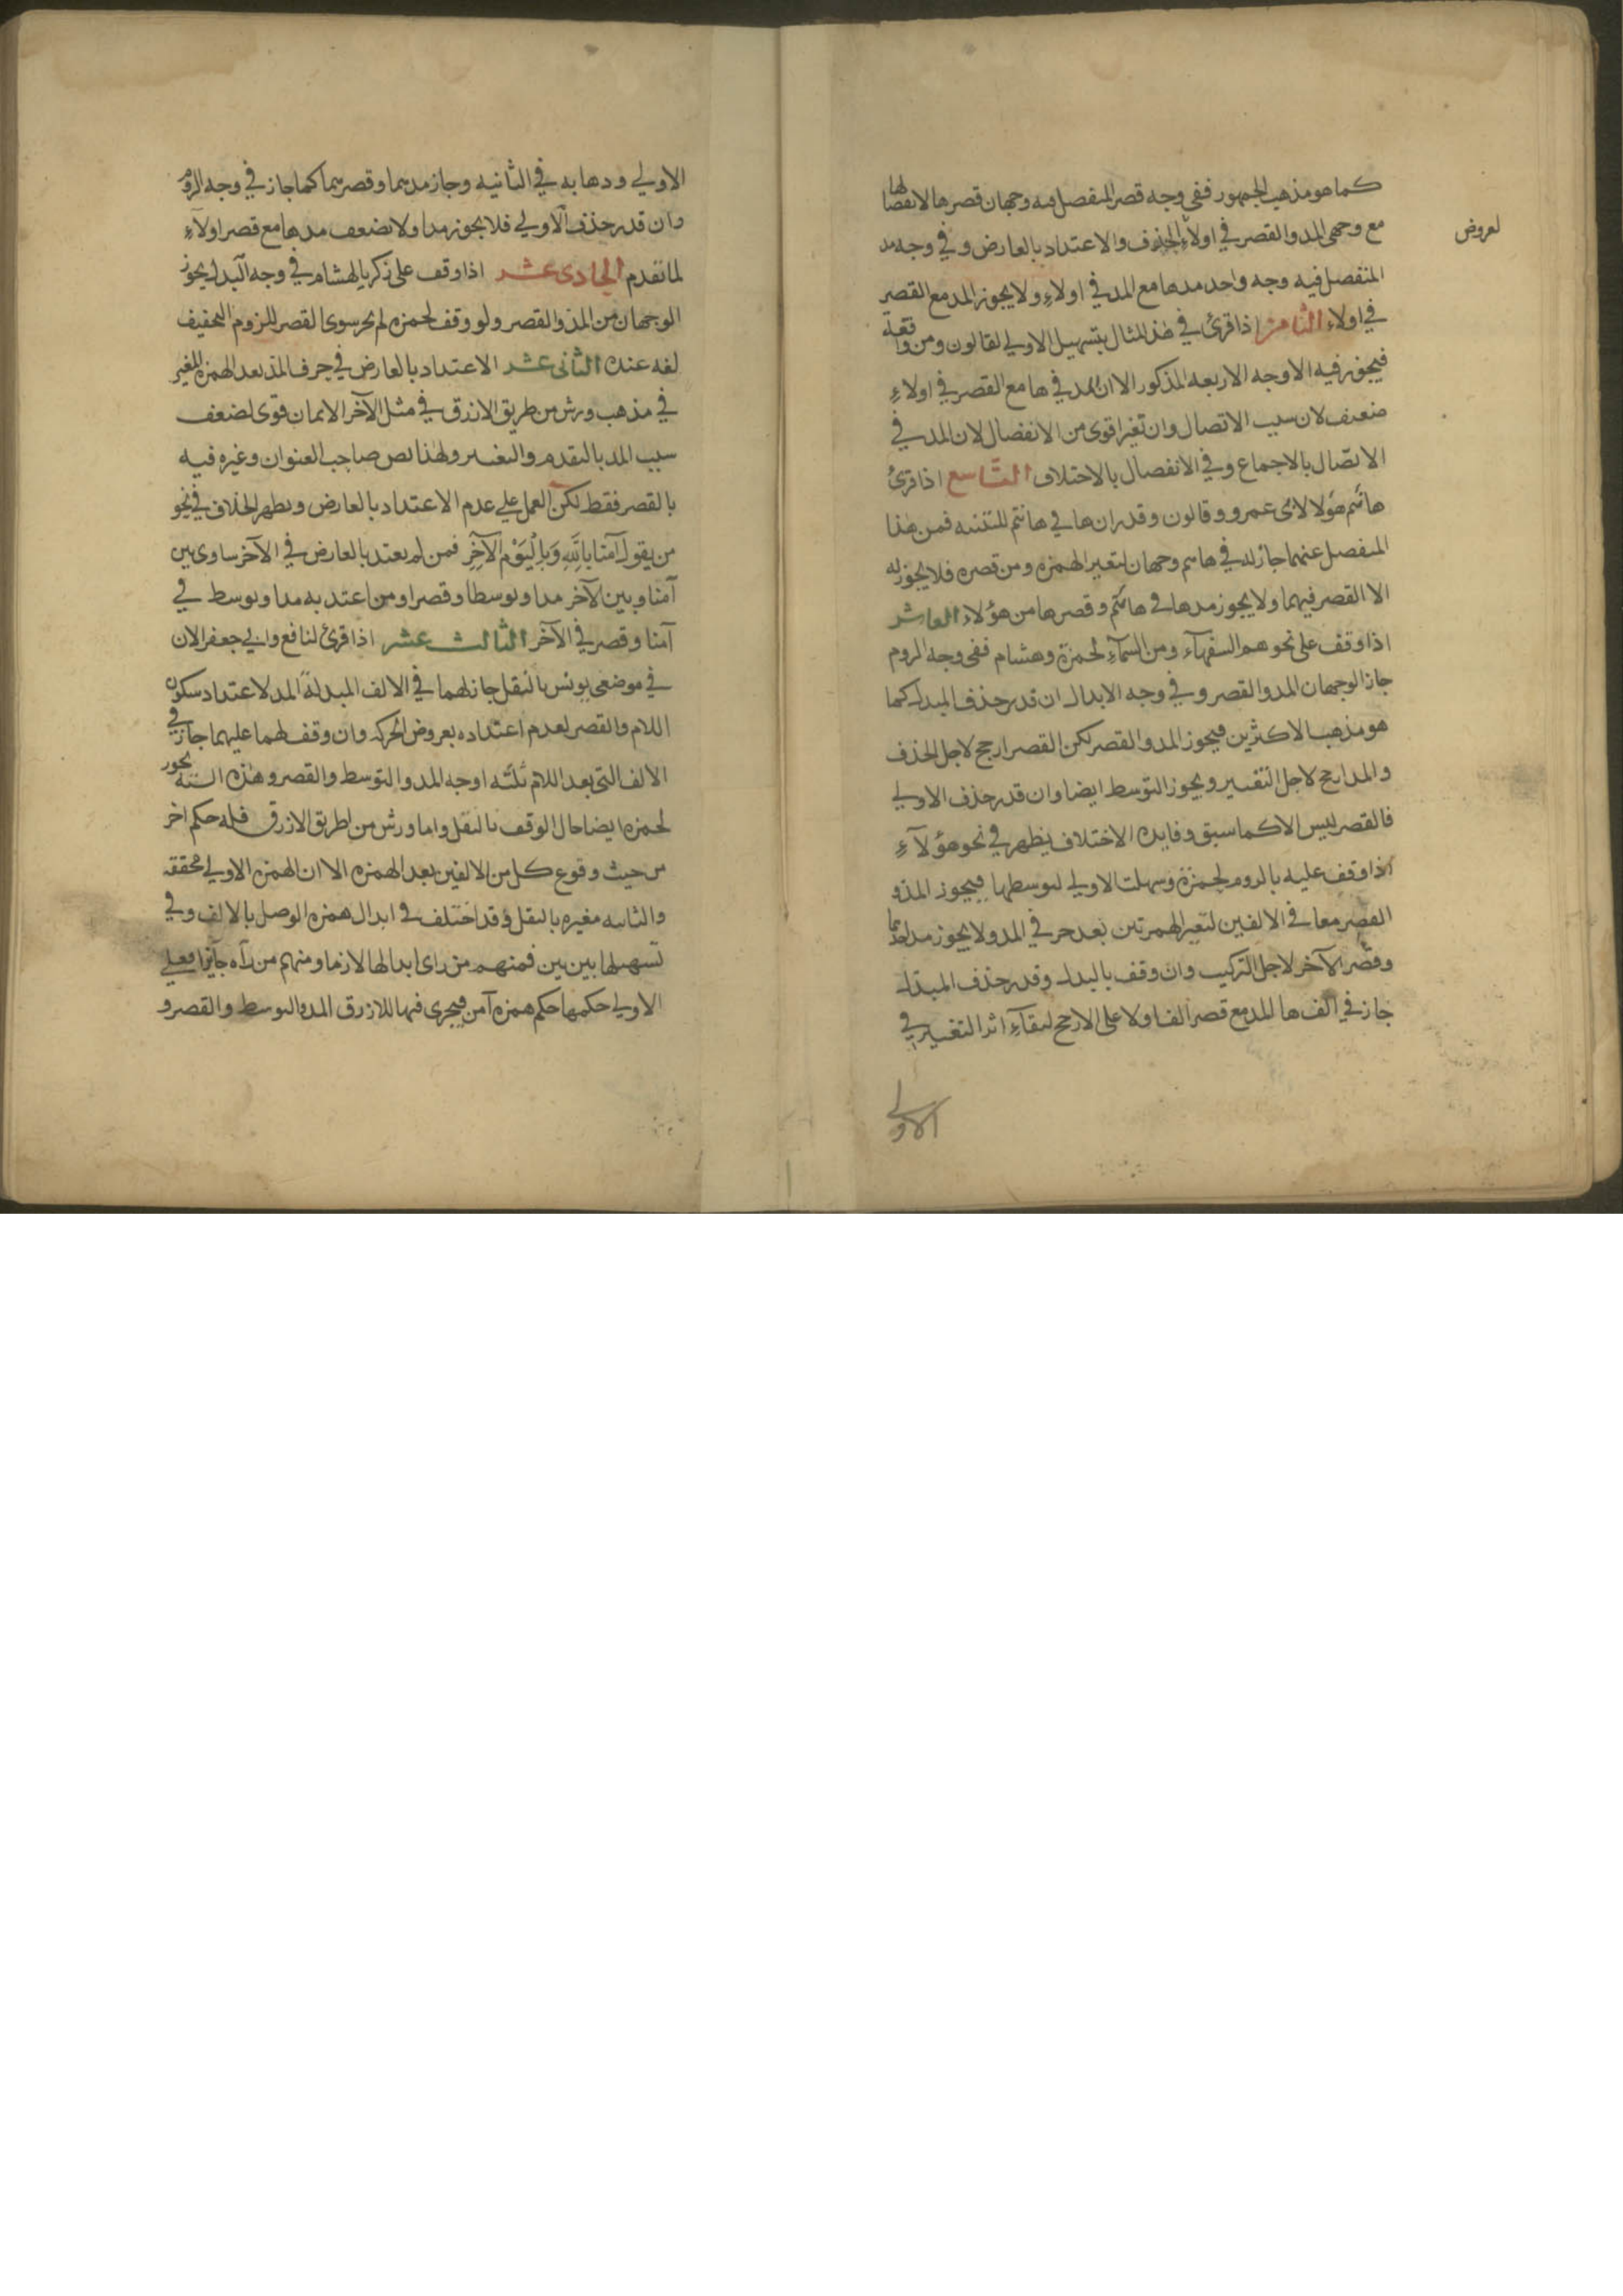 كما هو مذهب الجمهور ففي وجه قصر المنفصل فيه وجهان قصرها لانفصالها
مع وجهي المد والقصر في اولاء لعروض الحذف والاعتداد بالعارض وفي وجه مد
المنفصل فيه وجه واحد مدها مع المد في اولاءِ ولا يجوز المد مع القصر
في اولاء الثامن اذا قرئ في هذا المثال بتسهيل الاولي لقالون ومن وافقه
فيجوز فيه الاوجه الاربعه المذكور الا ان المد في ها مع القصر في اولاءِ
ضعيف لان سبب الاتصال وان تغير اقوى من الانفصال لان المد في
الاتصال بالاجماع وفي الانفصال بالاختلاف التاسع اذا قرئ
هانتم هؤلا لابى عمرو وقالون وقدر ان ها في هانتم للتنبيه فمن هذا
المنفصل عنهما جاز له في هانتم وجهان لتغير الهمزه ومن قصره فلا يجوز له
الا القصر فيهما ولا يجوز مدها في هانتم وقصرها من هؤلاء العاشر
اذا وقف على نحو هم السفهآء ومن السمآءِ لحمزة وهشام ففي وجه الروم
جاز الوجهان المد والقصر وفي وجه الابدال ان قدر حذف المبدل كما
هو مذهب الاكثرين فيجوز المد والقصر لكن القصر ارجح لاجل الحذف
والمد ارجح لاجل التغيير ويجوز التوسط ايضا وان قدر حذف الاولي
فالقصر ليس الا كما سبق وفايدة الاختلاف يظهر في نحو هؤلآءِ
اذا وقف عليه بالروم لحمزة وسهلت الاولي لتوسطها فيجوز المد و
القصر معا في الالفين لتغير الهمزتين بعد حرفي المد ولا يجوز مد احدهما
وقصر الآخر لاجل التركيب وان وقف بالبدل وقدر حذف المبدل
جاز في الف ها المد مع قصر الف اولا على الارجح لبقآءِ اثر التغيير في
الاولي
لعروض
الاولي وذهابه في الثانيه وجاز مدهما وقصرهما كما جاز في وجه الروم
وان قدر حذف الاولي فلا يجوز مدا ولا نضعف مدها مع قصر اولآءِ
لما تقدم الحادى عشر اذا وقف على زكريا لهشام في وجه البدل يجوز
الوجهان من المد والقصر ولو وقف لحمزه لم يجز سوى القصر للزوم التخفيف
لغه عنده الثانى عشر الاعتداد بالعارض في حرف المد بعد الهمزه المغير
في مذهب ورش من طريق الازرق في مثل الآخر الايمان قوى لضعف
سبب المد بالتقدم والتغيير ولهذا نص صاحب العنوان وغيره فيه
بالقصر فقط لكن العمل علي عدم الاعتداد بالعارض ويظهر الخلاف في نحو
من يقول آمنا بِاللهِ وَبِالْيَوْمِ الآخِرِ فمن لم يعتد بالعارض في الآخر ساوى بين
آمنا وبين الآخر مدا وتوسطا وقصرا ومن اعتد به مدا وتوسط في
آمنا وقصر في الآخر الثالث عشر اذا قرئ لنافع وابي جعفر الان
في موضعى يونس بالنقل جاز لهما في الالف المبدلة المد لاعتداد سكون
اللام والقصر لعدم اعتداده بعروض الحركه وان وقف لهما عليهما جاز في
الالف التى بعد اللام ثلثه اوجه المد والتوسط والقصر وهذه الستة يجوز
لحمزه ايضا حال الوقف بالنقل واما ورش من طريق الازرق فله حكم اخر
من حيث وقوع كل من الالفين بعد الهمزه الا ان الهمزه الاولي محققه
والثانيه مغيره بالنقل وقد اختلف في ابدال همزه الوصل بالالف وفي
تسهيلها بين بين فمنهم من راى ابدالها لازما ومنهم من رآه جآئزا فعلي
الاولي حكمها حكم همزه آمن فيجرى فيها للازرق المد والتوسط والقصر و